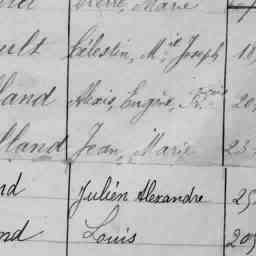 Pierre, Marie
ult Célestin, M.el Joseph 18
lland Alexis, Eugène, 20
lland Jean, Marie 23
nd Julien Alexandre 25
nd Louis 209